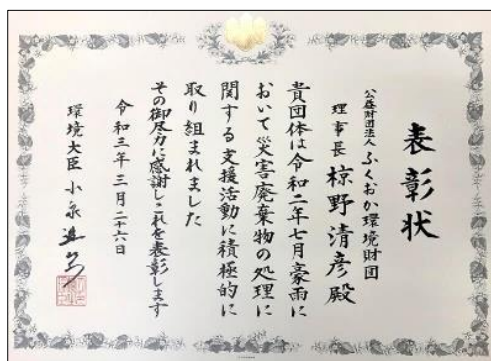 表彰状
公益財団法人 ふくおか環境財団
理事長 椋野清彦殿
貴団体は令和二年七月豪雨に
おいて災害廃棄物の処理に
関する支援活動に積極的に
取り組まれました
その御尽力に感謝しこれを表彰します
令和三年三月二十六日
環境大臣 小泉進次郎